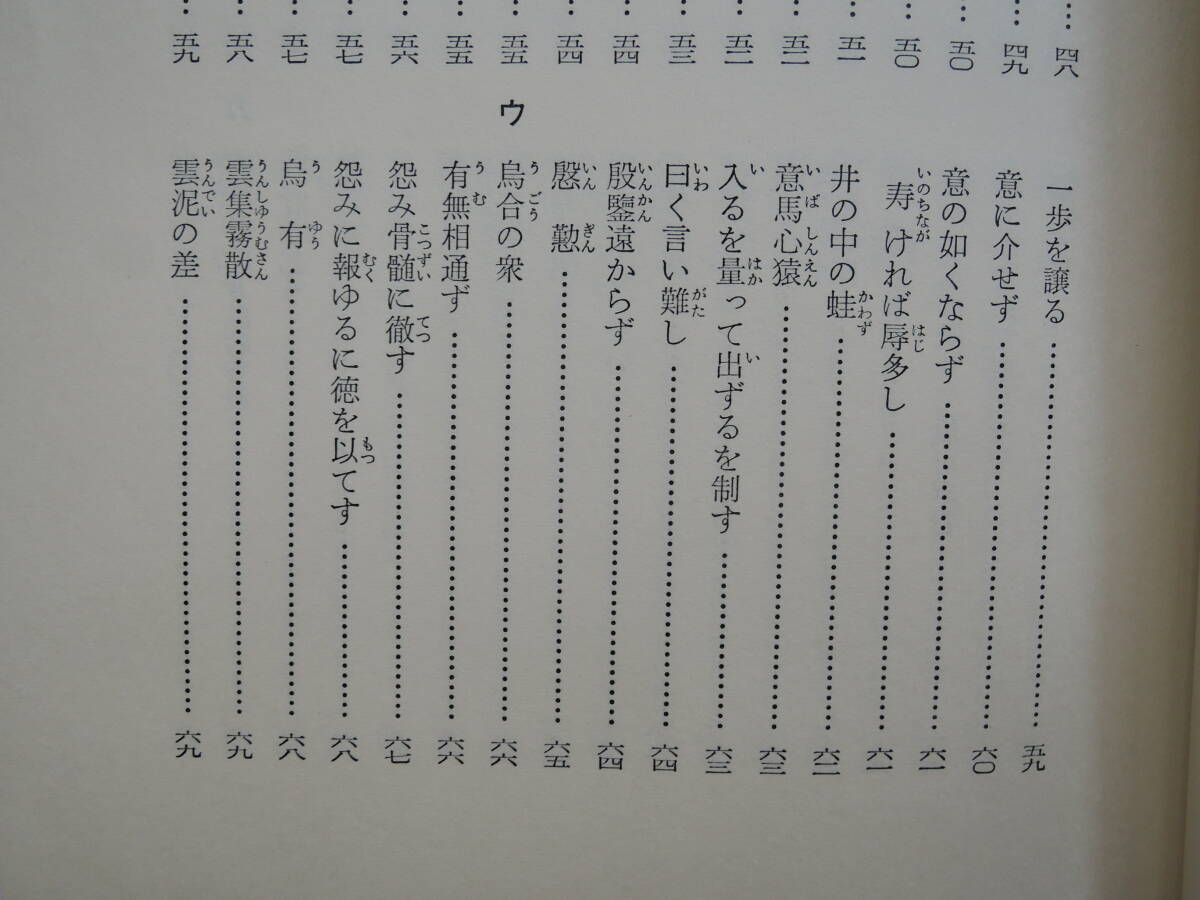 …四八
…四九
…五〇
…五〇
…五一
…五二
…五二
…五三
…五四
…五四
…五五
…五五
…五六
…五七
…五七
…五八
…五九
一歩を譲る……五九
意に介せず……六〇
意の如くならず……六一
寿ければ辱多し……六一
井の中の蛙……六二
意馬心猿……六三
入るを量って出ずるを制す……六三
曰く言い難し……六四
殷鑒遠からず……六四
慇懃……六五
ウ
烏合の衆……六六
有無相通ず……六六
怨み骨髄に徹す……六七
怨みに報ゆるに徳を以てす……六八
烏有……六八
雲集霧散……六九
雲泥の差……六九